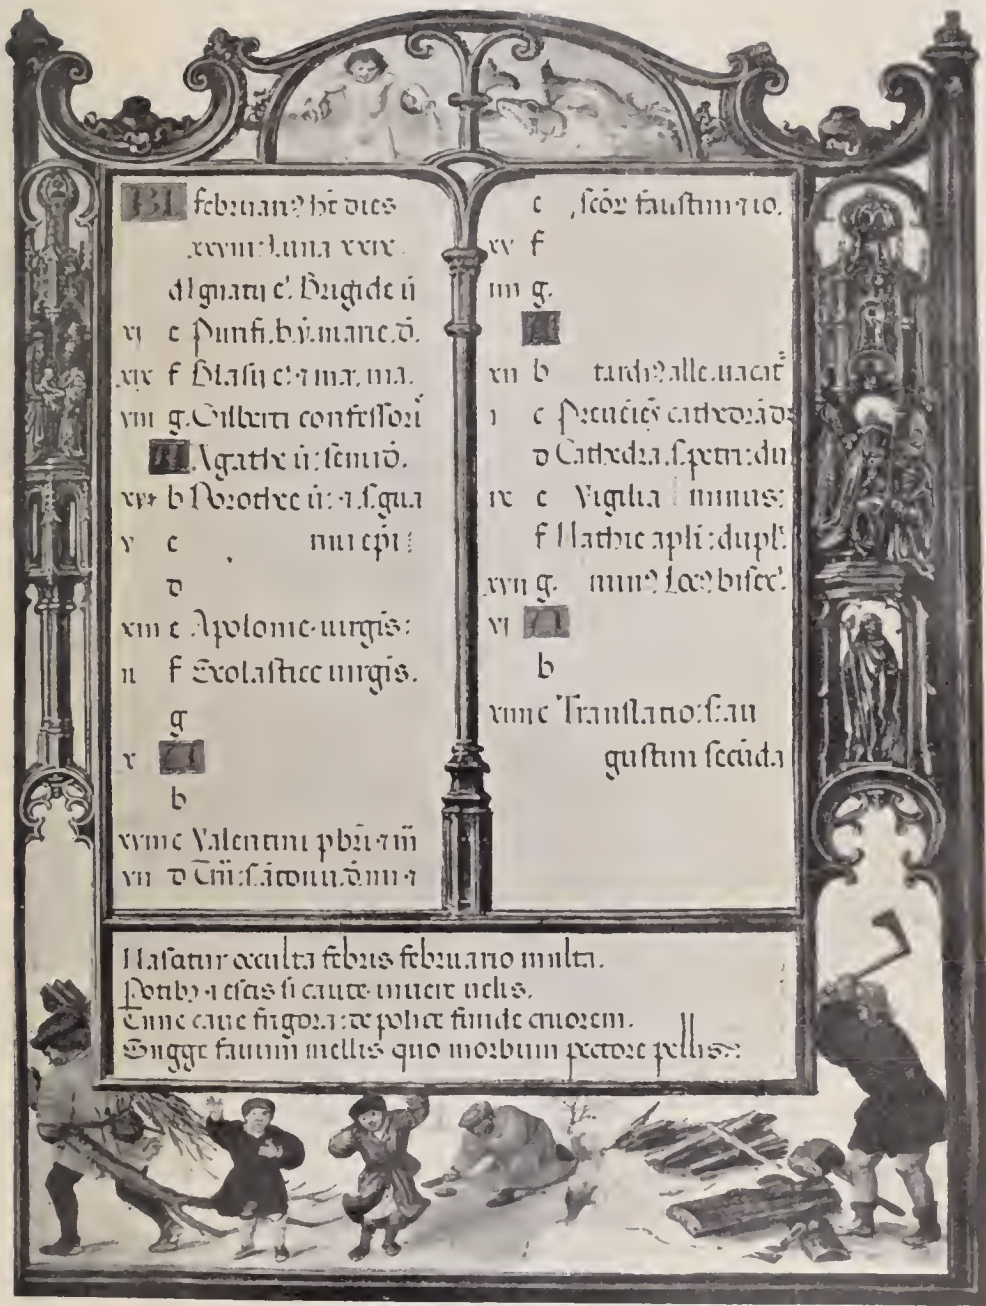 KL februari⁹ ht dies
xxviii: luna xxix.
d Ignatii e'. Brigide v̄
xi e Purifi. b. v̄. marie. d̄.
xix f Blasii e': ⁊ mar. ma.
viii g. Gilberti confessori
A Agathe v̄: semid̄.
xvi b Dorothee v̄: ⁊ s. gua
v c rini epi:
d
xiii e Apolonie. uirgis:
ii f Scolastice uirgis.
g
x A
b
xviii c Valentini pbri ⁊ m̄
vii d
e scor faustini ⁊ io.
xv f
iiii g.
A
xii b tardi⁹ alle. uacat
i c cathedra
d Cathedra. s. petri: du
ix e Vigilia minus:
f Mathie apli: dupl'.
xvii g. bisex'.
vi A
b
xiiii c Translatio: s. au
gustini secūda
Nascitur occulta febris februario multa.
Potib⁹ ⁊ escis si caute uiuere uelis.
Tunc caue frigora: de pollice funde cruorem.
Sugge fauum mellis quo morbum pectore pellis: